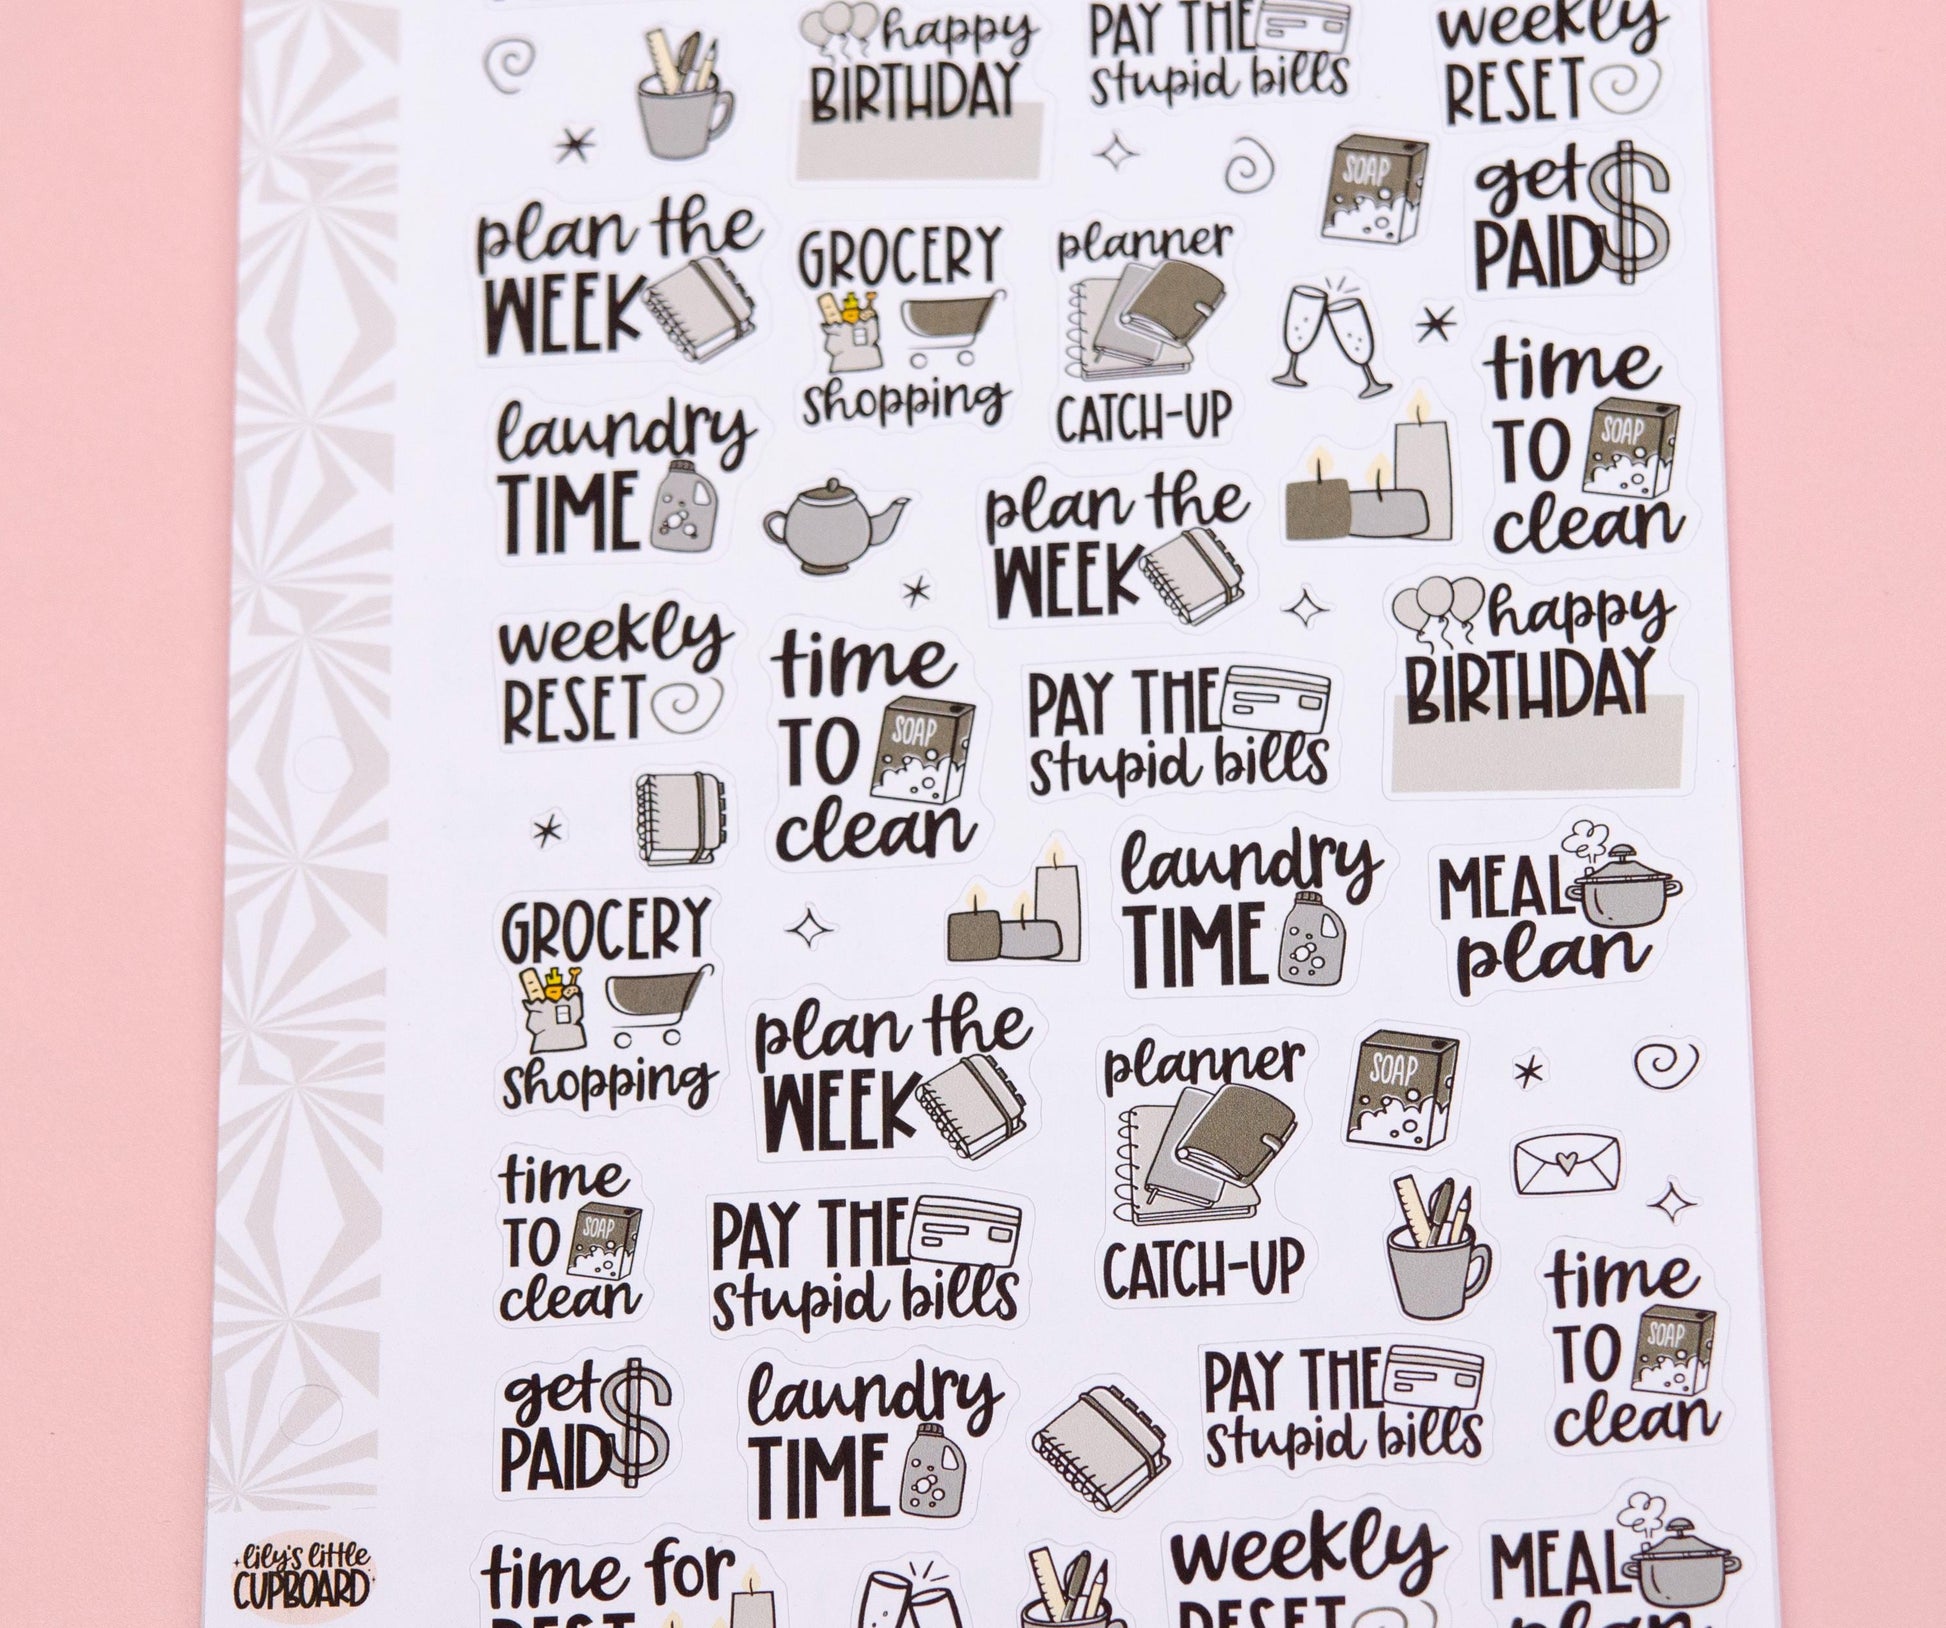 happy
BIRTHDAY
PAY THE
stupid bills
weekly
RESET
SOAP
get
PAID
plan the
WEEK
GROCERY
shopping
planner
CATCH-UP
time
TO
SOAP
clean
laundry
TIME
plan the
WEEK
happy
BIRTHDAY
weekly
RESET
time
TO
SOAP
clean
PAY THE
stupid bills
laundry
TIME
MEAL
plan
GROCERY
shopping
plan the
WEEK
planner
CATCH-UP
SOAP
time
TO
SOAP
clean
PAY THE
stupid bills
time
TO
SOAP
clean
get
PAID
laundry
TIME
PAY THE
stupid bills
lily's little
CUPBOARD
time for
REST
weekly
RESET
MEAL
plan